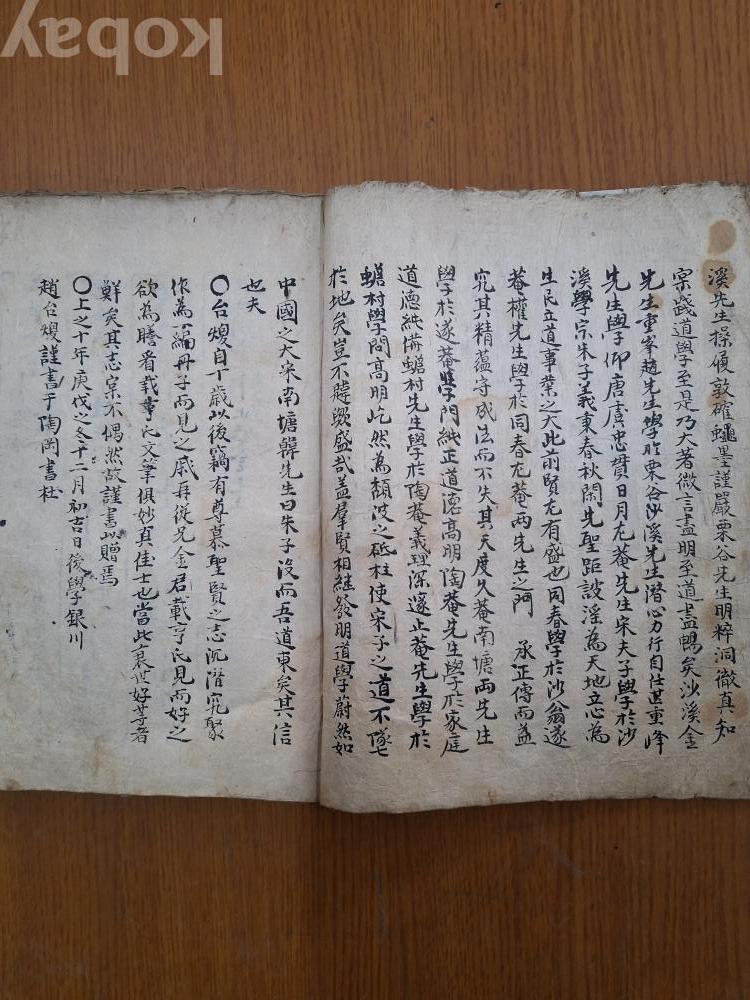 溪先生操履敦確繩墨謹嚴栗谷先生明粹洞徹真知
宲踐道學至是乃大著微言盡明至道盡鳴矣沙溪金
先生重峯趙先生學於栗谷沙溪先生潛心力行自任甚重峰
先生學仰唐虞忠贊日月尤菴先生宋夫子學於沙
溪學宗朱子義秉春秋閑先聖距詖淫為天地立心為
生民立道事業之大此前賢尤有盛也同春學於沙翁遂
菴權先生學於同春尤菴兩先生之門 承正傳而益
究其精蘊守成法而不失其天度久菴南塘兩先生
學於遂菴學門純正道德高明陶菴先生學於家庭
道德純備蟾村先生學於陶菴義理深邃止菴先生學於
蟾村學問高明屹然為頹波之砥柱使宋子之道不墜
於地矣豈不韙歟盛哉盖羣賢相継發明道學蔚然如
中國之大宋南塘韓先生曰朱子没而吾道東矣其信
也夫
〇台煥自丁歲以後竊有尊慕聖賢之志沉潛究聚
作為一編冊子而見之戚再從兄金君載亨氏見而好之
欲為謄看載亨氏文筆俱妙真佳士也當此衰世好等者
鮮矣其志宲不偶然故謹書以贈焉
〇上之十年庚戌之冬十二月初吉日後學銀川
趙台煥謹書于陶岡書社
kobay